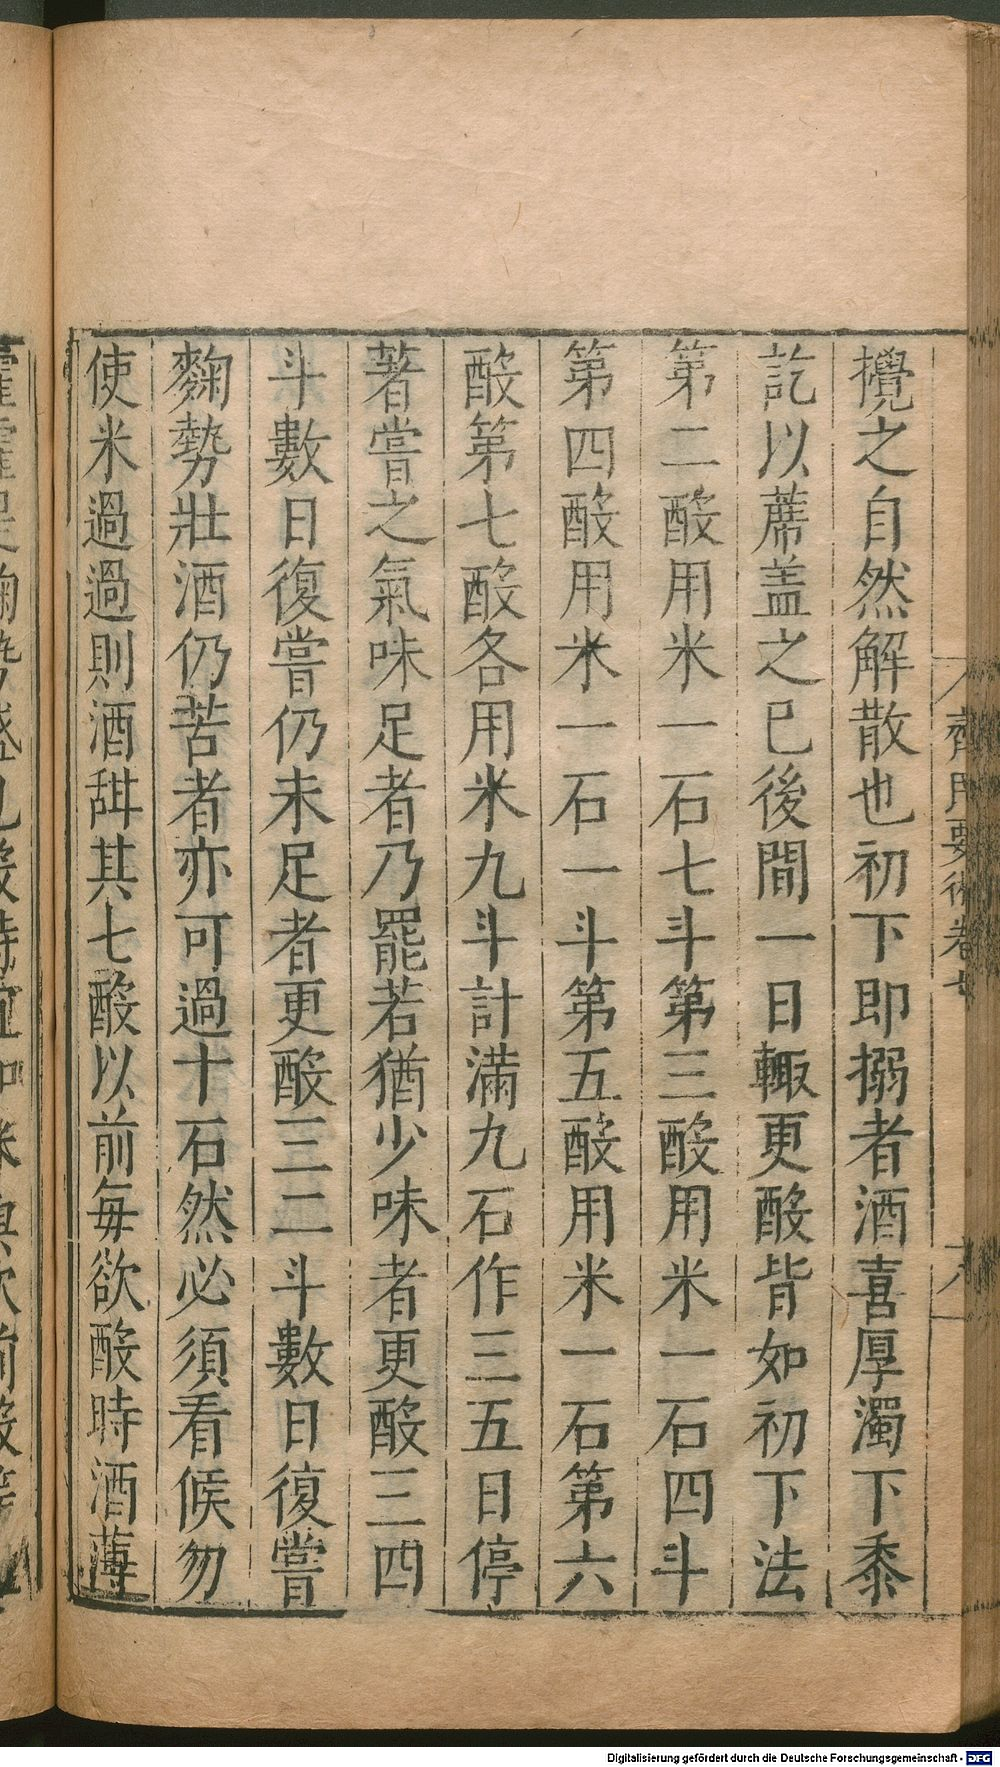 齊民要術卷七
十八
攪之自然解散也初下即搦者酒喜厚濁下黍
訖以蓆盖之已後間一日輙更酘皆如初下法
第二酘用米一石七斗第三酘用米一石四斗
第四酘用米一石一斗第五酘用米一石第六
酘第七酘各用米九斗計滿九石作三五日停
著嘗之氣味足者乃罷若猶少味者更酘三四
斗數日復嘗仍未足者更酘三二斗數日復嘗
麴勢壯酒仍苦者亦可過十石然必須看候勿
使米過過則酒甜其七酘以前每欲酘時酒薄
Digitalisierung gefördert durch die Deutsche Forschungsgemeinschaft - DFG